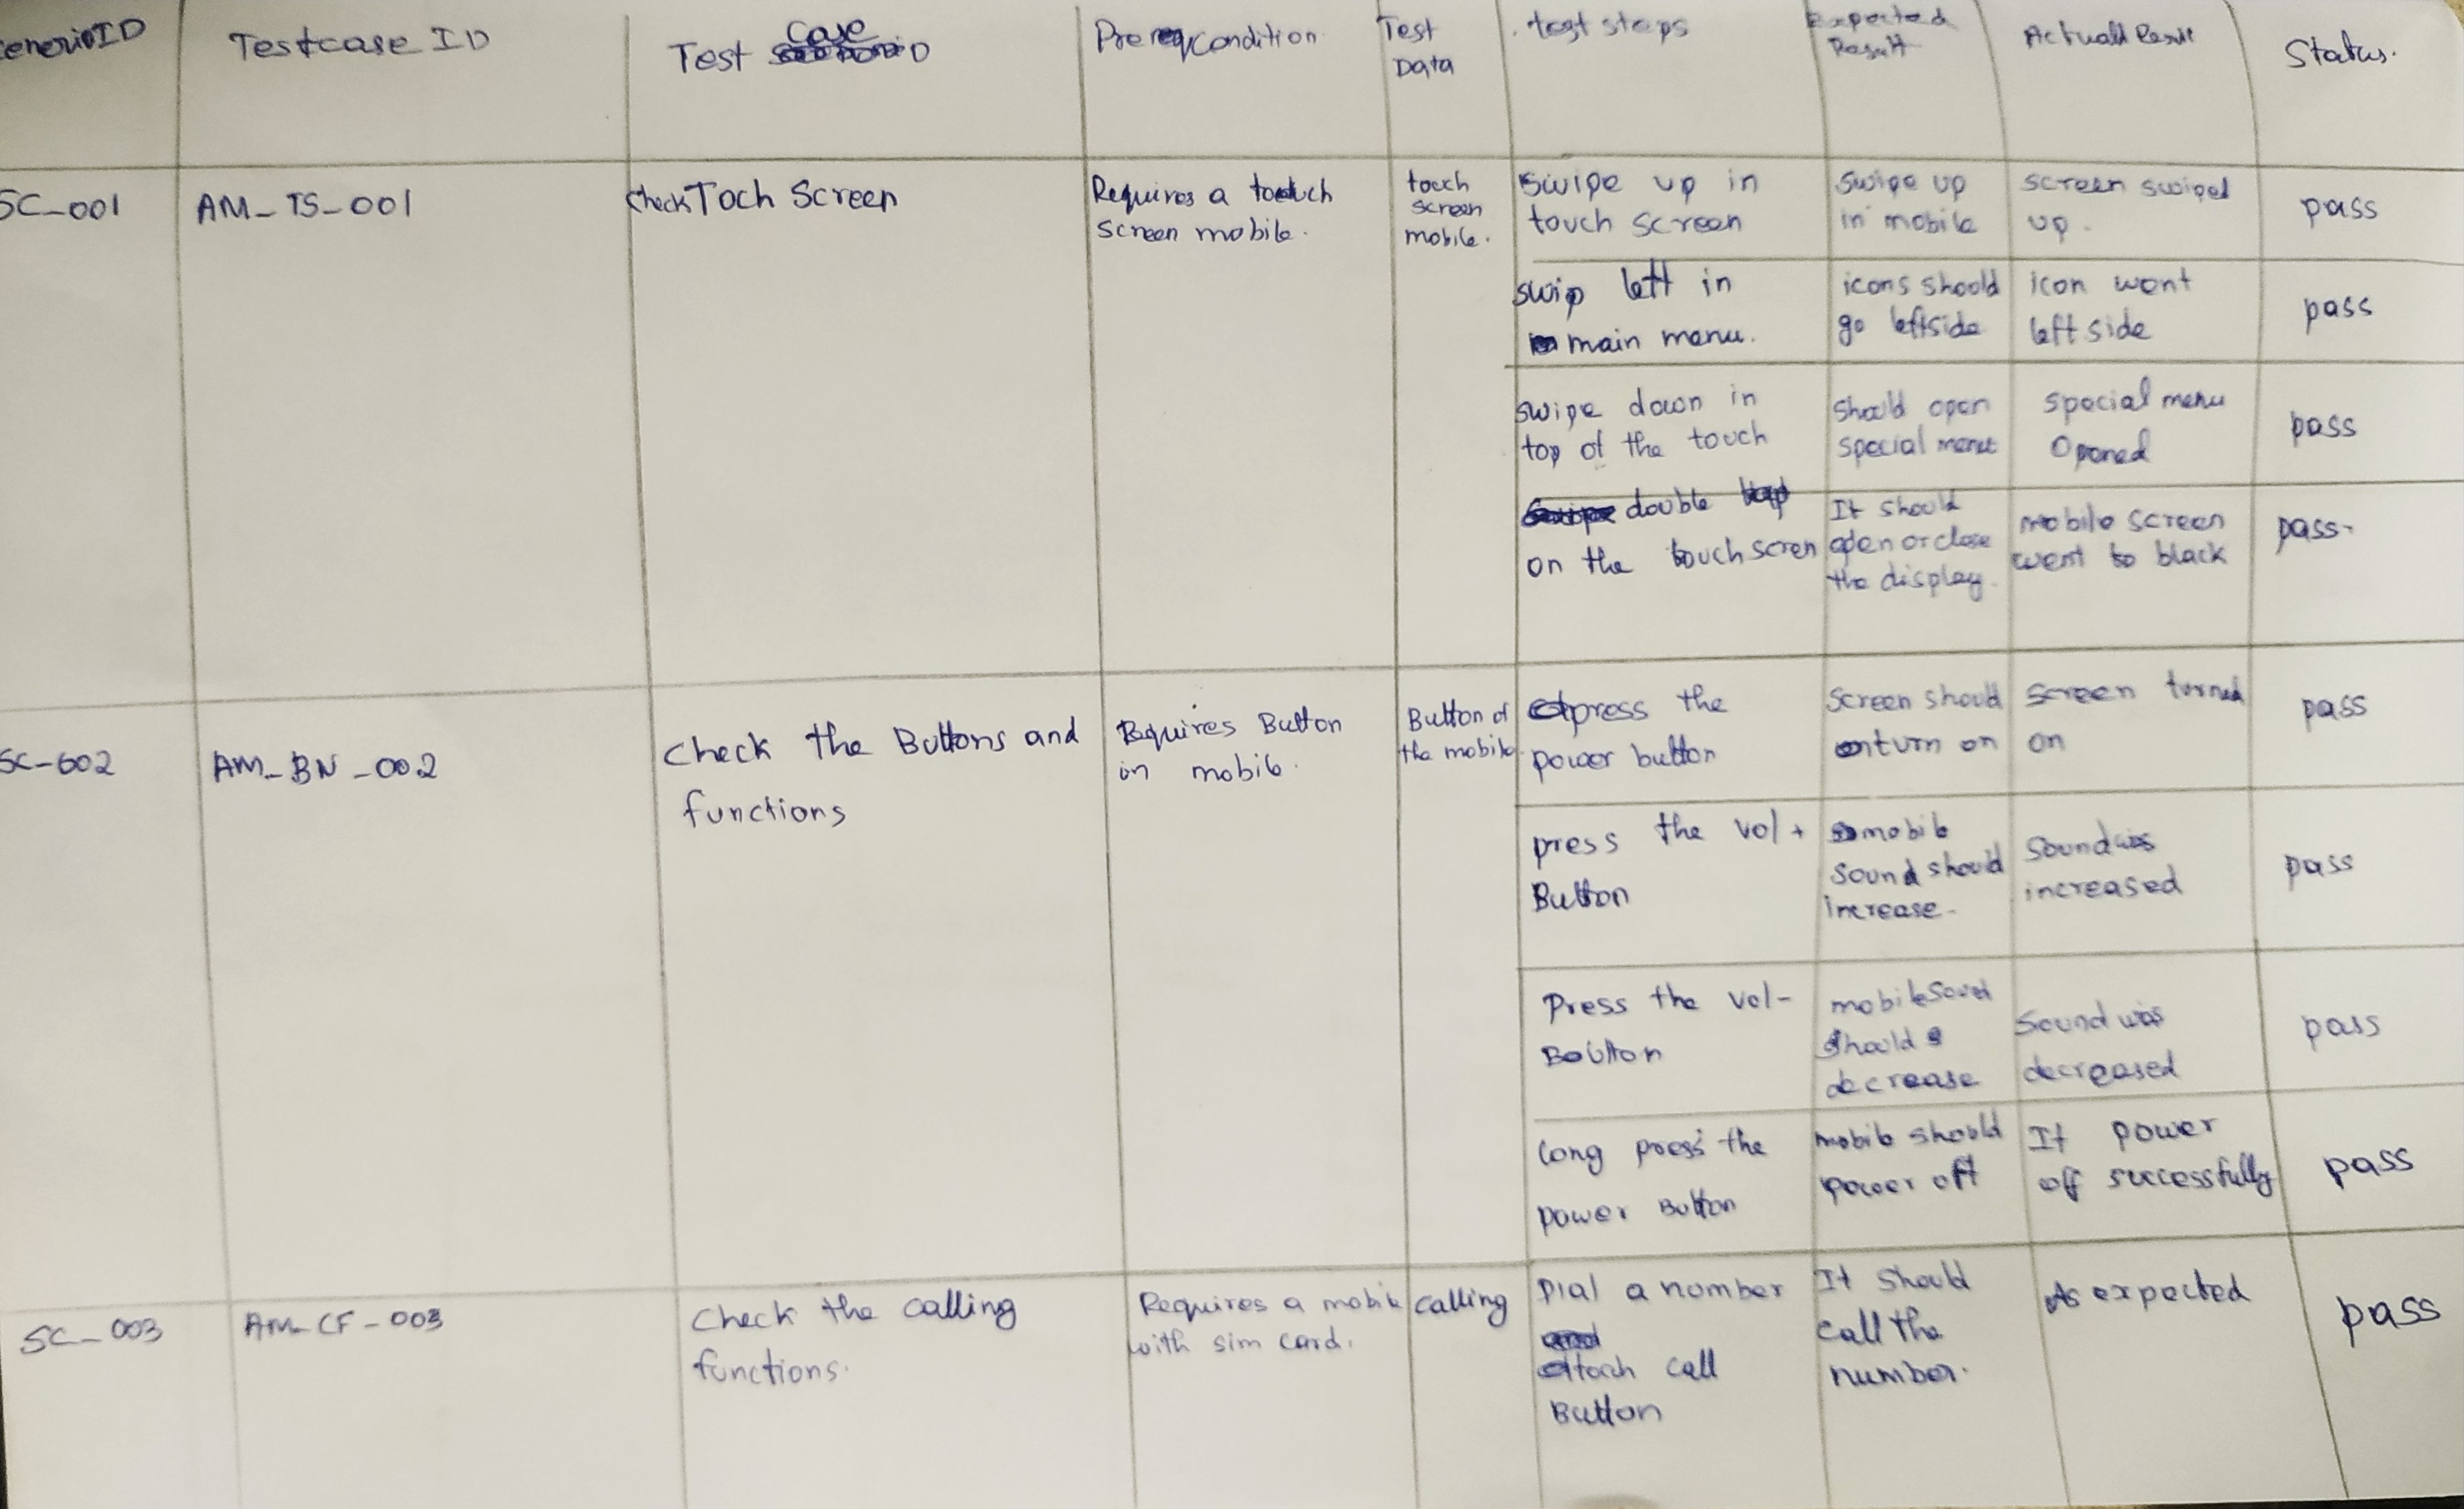 enerioID
Testcase ID
Test Case D
Precondition
Test
Data
test steps
Expected
Result
Actual Result
Status.
SC_001
AM_TS_001
check Toch Screen
Requires a touch
Screen mobile.
touch
screen
mobile.
Swipe up in
touch screen
Swipe up
in mobile
screen swiped
up.
pass
swip left in
main menu.
icons should
go leftside
icon went
left side
pass
swipe down in
top of the touch
Should open
special menu
special menu
Opened
pass
double tap
on the touch scren
It should
open or close
the display.
mobile screen
went to black
pass.
SC-002
AM_BN_002
Check the Buttons and
functions
Requires Button
in mobile.
Button of
the mobile.
press the
power button
Screen should
turn on
Screen turned
on
pass
press the vol+
Button
mobile
sound should
increase.
Sound was
increased
pass
Press the vol-
Boutton
mobile sound
should
decrease
Sound was
decreased
pass
long press the
power Button
mobile should
power off
It power
off successfully
pass
SC_003
AM_CF_003
Check the calling
functions.
Requires a mobile
with sim card.
calling
Dial a number
toach call
Button
It should
call the
number.
As expected
pass